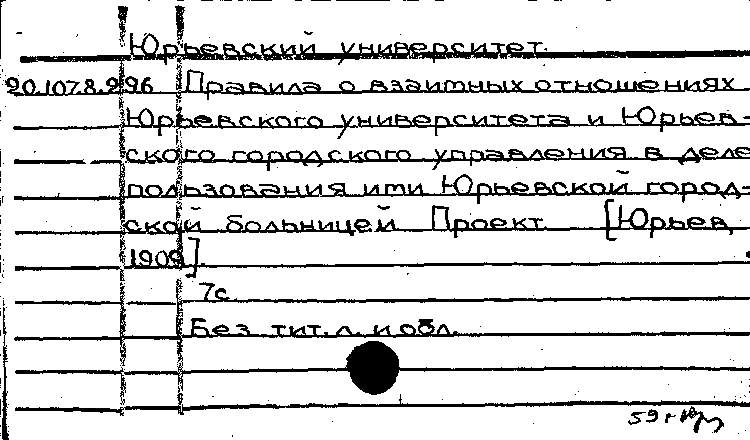 Юрьевский университет.
20.107.8.296 Правила о взаимных отношениях
Юрьевского университета и Юрьев-
ского городского управления в деле
пользования ими Юрьевской город-
ской больницей Проект [Юрьев,
1909].
7с
Без тит. л. и обл.
59 г